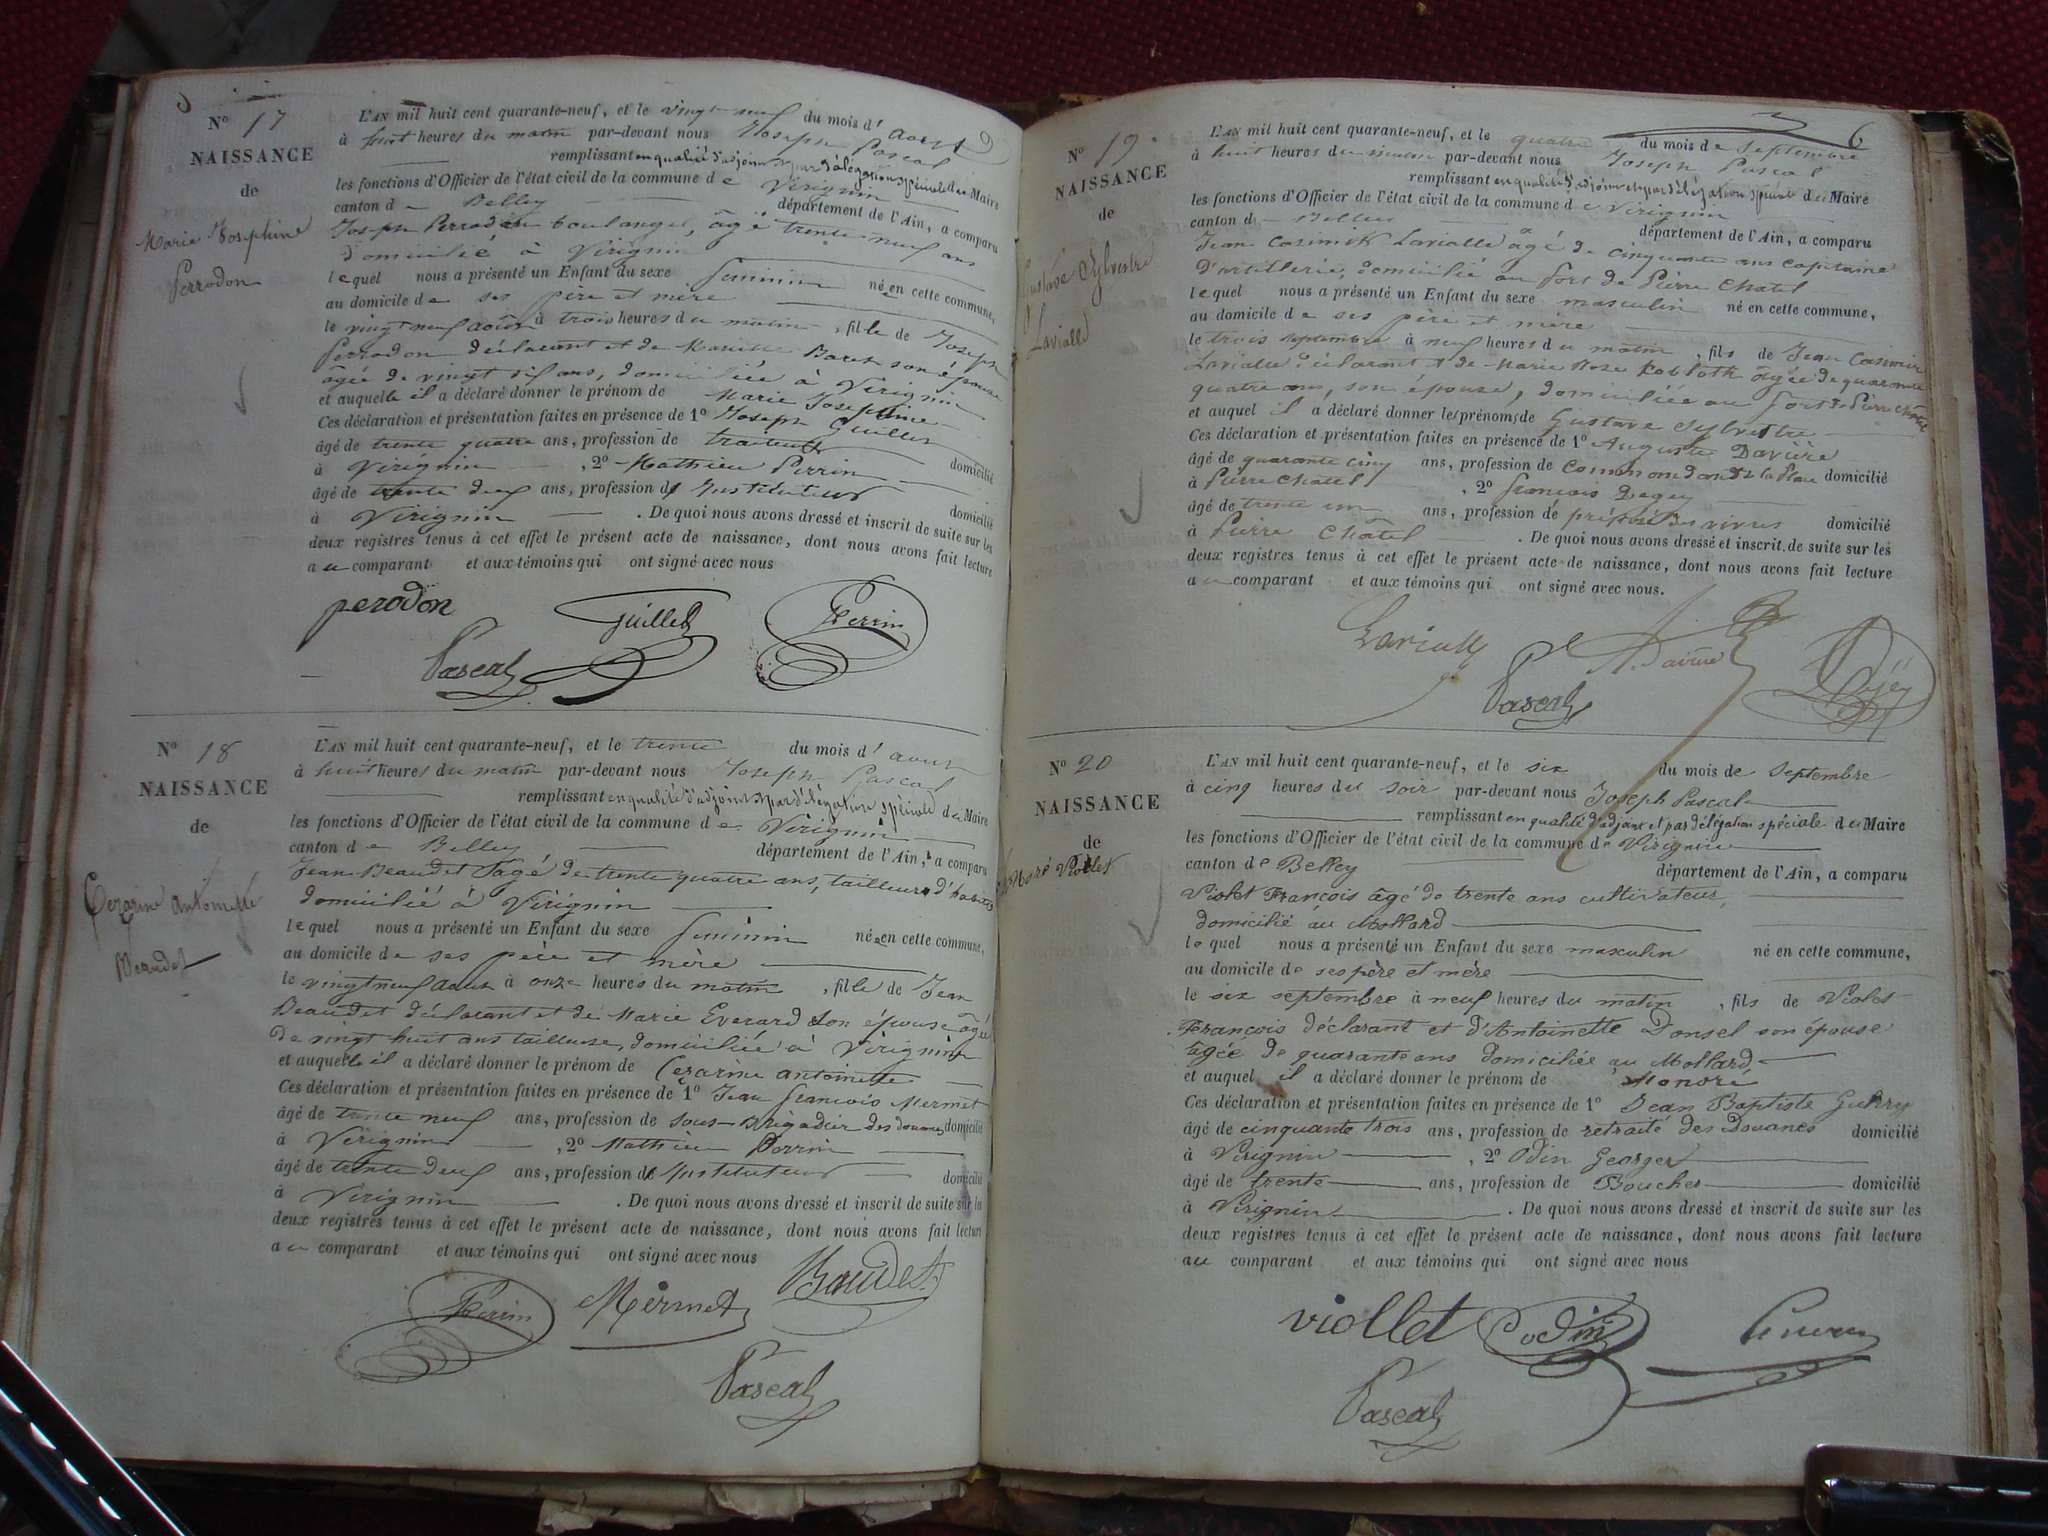 Nº 17
NAISSANCE
de
Marie Josephine
Perrodon
L'AN mil huit cent quarante-neuf, et le vingt neuf du mois d' Aout
à huit heures du matin par-devant nous Joseph Pascal
remplissant en qualité d'adjoint et par délégation spéciale du Maire
les fonctions d'Officier de l'état civil de la commune de Virignin
canton de Belley département de l'Ain, a comparu
Joseph Perrodon boulanger, âgé trente neuf ans
domicilié à Virignin
lequel nous a présenté un Enfant du sexe féminin née en cette commune,
au domicile de ses père et mère
le vingt neuf août à trois heures du matin, fille de Joseph
Perrodon déclarant et de Mariette son épouse
âgée de vingt ans, domiciliée à Virignin
et auquelle il a déclaré donner le prénom de Marie Josephine
Ces déclaration et présentation faites en présence de 1º Joseph Guillet
âgé de trente quatre ans, profession de traiteur domicilié
à Virignin, 2º Mathieu Perrin
âgé de trente deux ans, profession d'Instituteur domicilié
à Virignin. De quoi nous avons dressé et inscrit de suite sur les
deux registres tenus à cet effet le présent acte de naissance, dont nous avons fait lecture
au comparant et aux témoins qui ont signé avec nous
perodon Guillet Perrin
Pascal
Nº 18
NAISSANCE
de
Cezarine Antoinette
Beaudet
L'AN mil huit cent quarante-neuf, et le trente du mois d' aout
à huit heures du matin par-devant nous Joseph Pascal
remplissant en qualité d'adjoint et par délégation spéciale du Maire
les fonctions d'Officier de l'état civil de la commune de Virignin
canton de Belley département de l'Ain, a comparu
Jean Beaudet âgé de trente quatre ans, tailleur d'habits
domicilié à Virignin
lequel nous a présenté un Enfant du sexe féminin née en cette commune,
au domicile de ses père et mère
le vingt neuf aout à onze heures du matin, fille de Jean
Beaudet déclarant et de Marie Everard son épouse âgée
de vingt huit ans tailleuse, domiciliée à Virignin
et auquelle il a déclaré donner le prénom de Cezarine Antoinette
Ces déclaration et présentation faites en présence de 1º Jean François Mermet
âgé de trente neuf ans, profession de Sous-Brigadier des douanes domicilié
à Virignin, 2º Mathieu Perrin
âgé de trente deux ans, profession d'Instituteur domicilié
à Virignin. De quoi nous avons dressé et inscrit de suite sur les
deux registres tenus à cet effet le présent acte de naissance, dont nous avons fait lecture
au comparant et aux témoins qui ont signé avec nous
Perrin Mermet Baudet
Pascal
6
Nº 19
NAISSANCE
de
Gustave Sylvestre
Lavialle
L'AN mil huit cent quarante-neuf, et le quatre du mois de Septembre
à huit heures du matin par-devant nous Joseph Pascal
remplissant en qualité d'adjoint et par délégation spéciale du Maire
les fonctions d'Officier de l'état civil de la commune de Virignin
canton de Belley département de l'Ain, a comparu
Jean Casimir Lavialle âgé de cinquante ans capitaine
d'artillerie, domicilié au fort de Pierre Chatel
lequel nous a présenté un Enfant du sexe masculin né en cette commune,
au domicile de ses père et mère
le trois septembre à neuf heures du matin, fils de Jean Casimir
Lavialle déclarant et de Marie Rose âgée de quarante
quatre ans, son épouse, domiciliée au fort de Pierre Chatel
et auquel il a déclaré donner les prénoms de Gustave Sylvestre
Ces déclaration et présentation faites en présence de 1º Auguste Davière
âgé de quarante cinq ans, profession de Commandant de la Place domicilié
à Pierre Chatel, 2º françois
âgé de trente un ans, profession de préposé des vivres domicilié
à Pierre Châtel. De quoi nous avons dressé et inscrit de suite sur les
deux registres tenus à cet effet le présent acte de naissance, dont nous avons fait lecture
au comparant et aux témoins qui ont signé avec nous.
Lavialle A. Davière
Pascal
Nº 20
NAISSANCE
de
Honoré Violet
L'AN mil huit cent quarante-neuf, et le six du mois de Septembre
à cinq heures du soir par-devant nous Joseph Pascal
remplissant en qualité d'adjoint et par délégation spéciale du Maire
les fonctions d'Officier de l'état civil de la commune de Virignin
canton de Belley département de l'Ain, a comparu
Violet François âgé de trente ans cultivateur,
domicilié au Mollard
lequel nous a présenté un Enfant du sexe masculin né en cette commune,
au domicile de ses père et mère
le six septembre à neuf heures du matin, fils de Violet
François déclarant et d'Antoinette Donsel son épouse
âgée de quarante ans domiciliée au Mollard
et auquel il a déclaré donner le prénom de Honoré
Ces déclaration et présentation faites en présence de 1º Jean Baptiste
âgé de cinquante trois ans, profession de retraité des Douanes domicilié
à Virignin, 2º Odin Georges
âgé de trente ans, profession de Boucher domicilié
à Virignin. De quoi nous avons dressé et inscrit de suite sur les
deux registres tenus à cet effet le présent acte de naissance, dont nous avons fait lecture
au comparant et aux témoins qui ont signé avec nous
viollet odin
Pascal